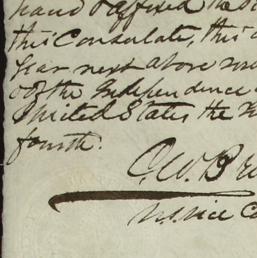 hand & affixed the
this Consulate, this
Year next above
of the Independence
United States the
fourth.
G.W. Br
U.S. Vice Co